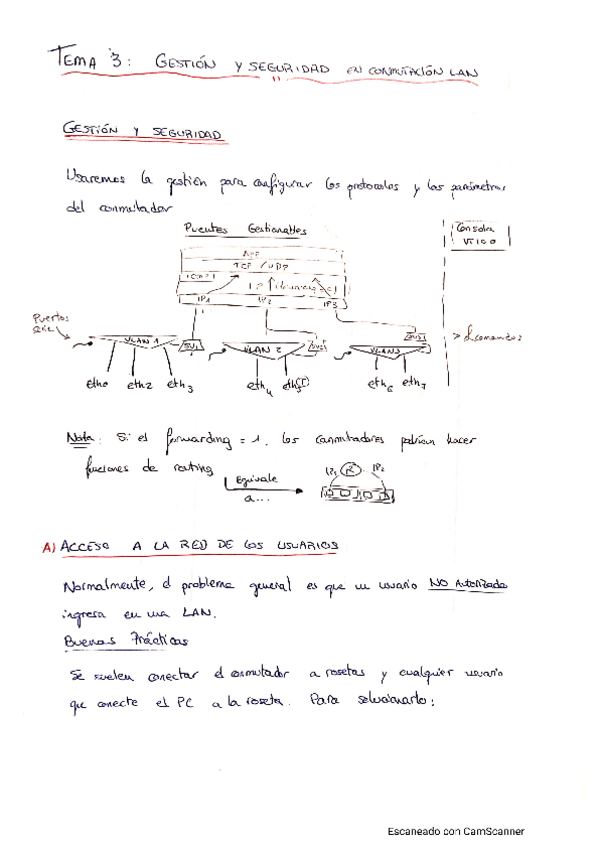 TEMA 3: GESTIÓN Y SEGURIDAD EN CONMUTACIÓN LAN
GESTIÓN Y SEGURIDAD
Usaremos la gestión para configurar los protocolos y los parámetros
del conmutador
Puentes Gestionables
Consola
VT100
APP
TCP / UDP
ICMP
IP
IP1 IP2 IP3
Puertos
VLAN 1 SVI1 VLAN 2 SVI2 VLAN3 SVI3
> comandos
eth0 eth2 eth3 eth4 eth5 eth6 eth7
Nota: Si el forwarding = 1. los conmutadores podrían hacer
funciones de routing
Equivale
a...
IP1 R IP2
A) ACCESO A LA RED DE LOS USUARIOS
Normalmente, el problema general es que un usuario NO Autorizado
ingresa en una LAN.
Buenas Prácticas
Se suelen conectar el conmutador a rosetas y cualquier usuario
que conecte el PC a la roseta. Para solucionarlo:
Escaneado con CamScanner